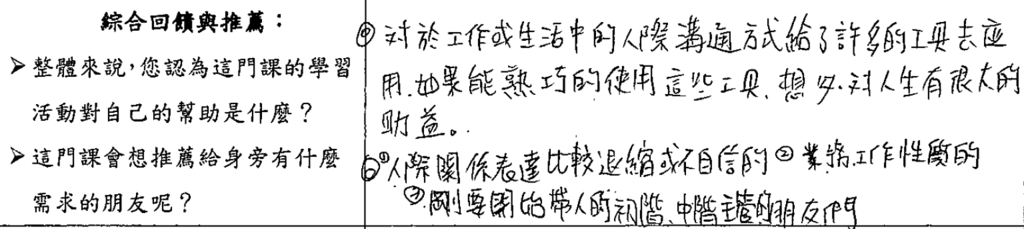 綜合回饋與推薦：
➤整體來說，您認為這門課的學習
活動對自己的幫助是什麼？
➤這門課會想推薦給身旁有什麼
需求的朋友呢？
對於工作或生活中的人際溝通方式給了許多的工具去应
用.如果能熟巧的使用這些工具、想必.对人生有很大的
助益。
①人際関係表達比較退縮或不自信的②業務工作性質的
③剛要開始帶人的初階、中階主管的朋友們